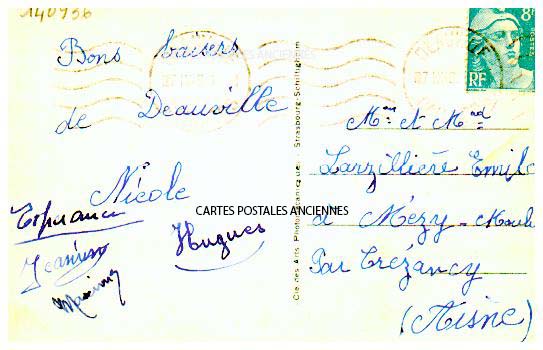 140936
Bons baisers
de Deauville
Nicole
Hugues
Jeanine
CARTES POSTALES ANCIENNES
Cie des Arts Photomécaniques - Strasbourg-Schiltigheim
8F
RF
DEAUVILLE
Mr et Mad
Larzillière Emile
à Mézy-Moulins
Par Crézancy
(Aisne)